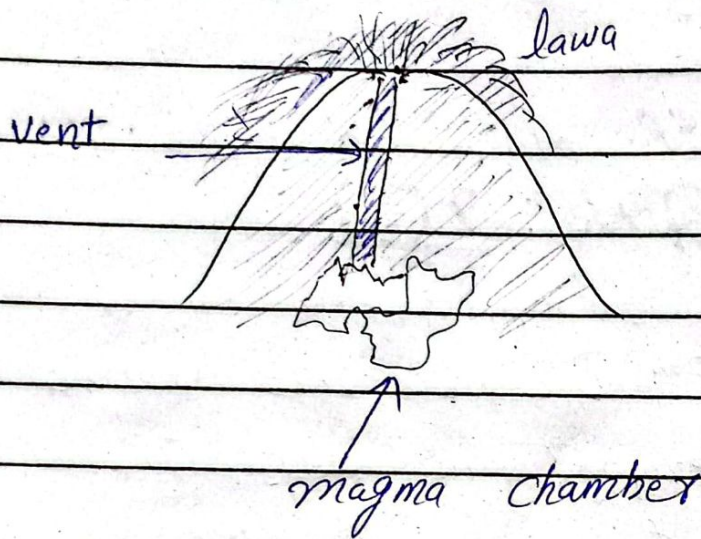 lawa
vent
magma chamber